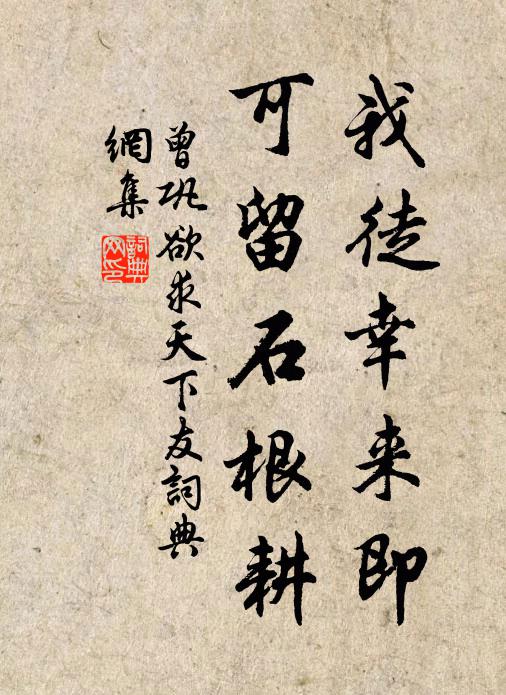 我徒幸来即
可留石根耕
曾巩欲求天下友詞典
網集
詞典
网印